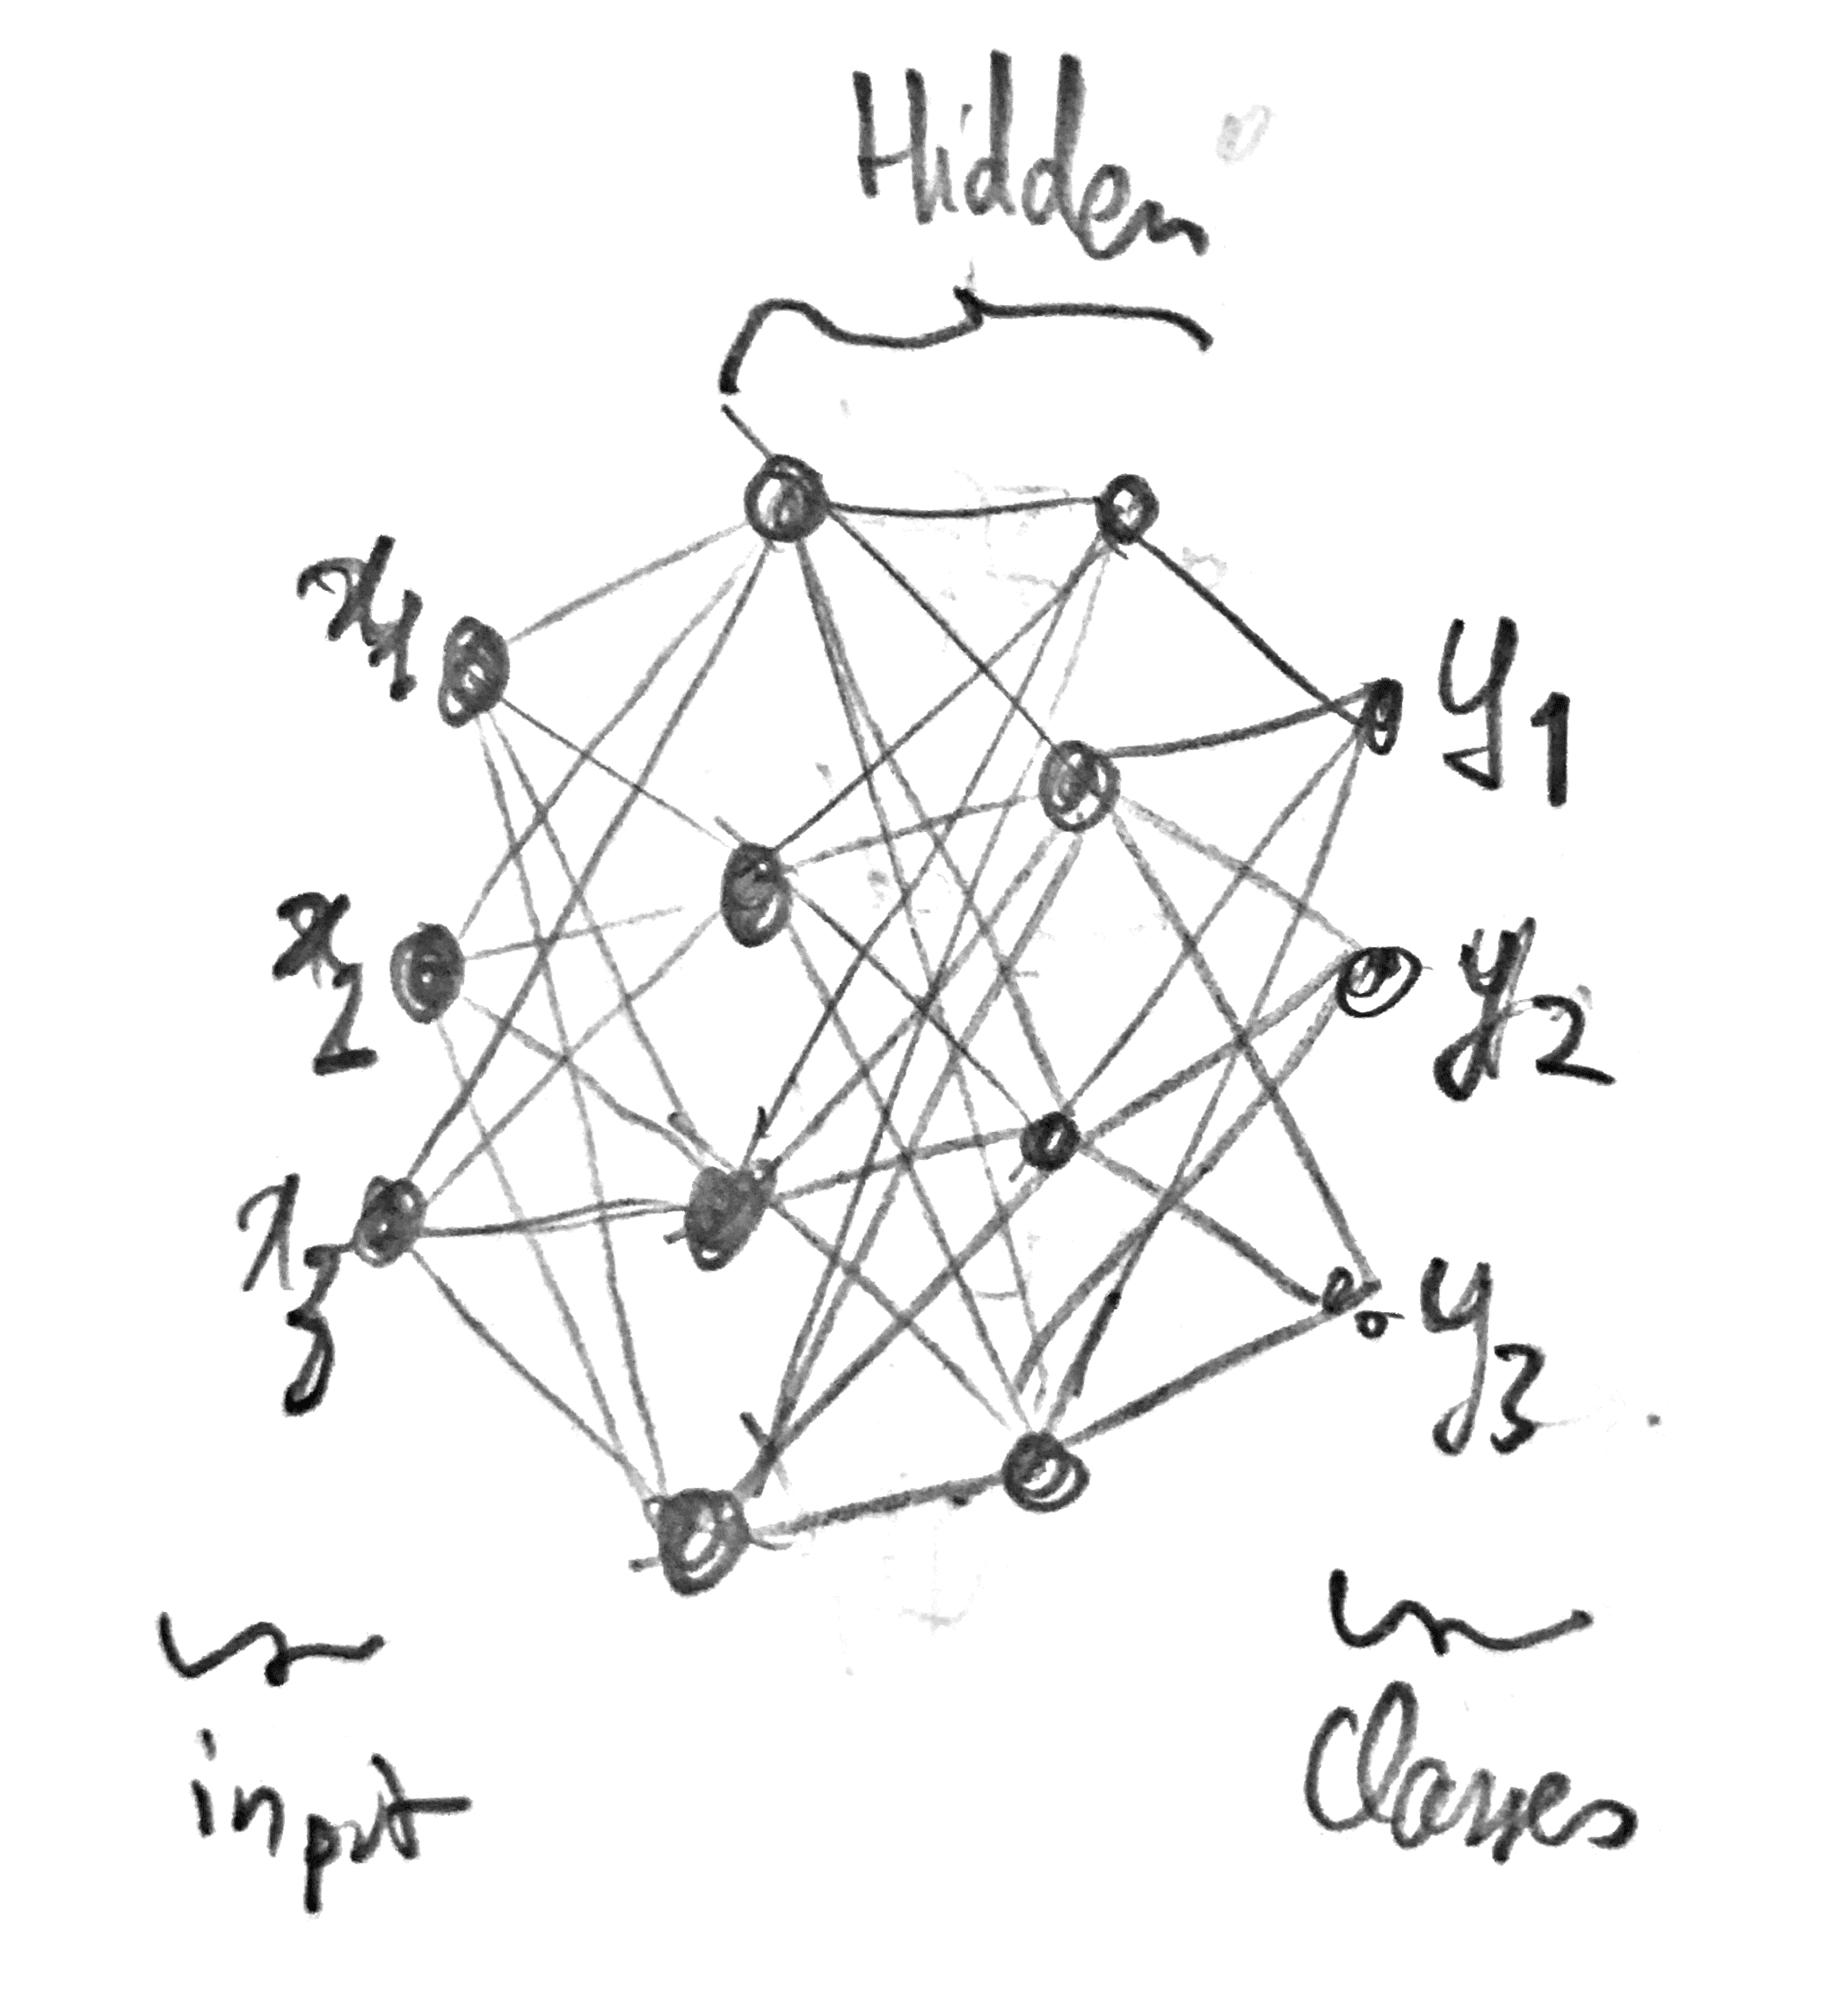 Hidden
x1
y1
x2
y2
x3
y3
input
Classes